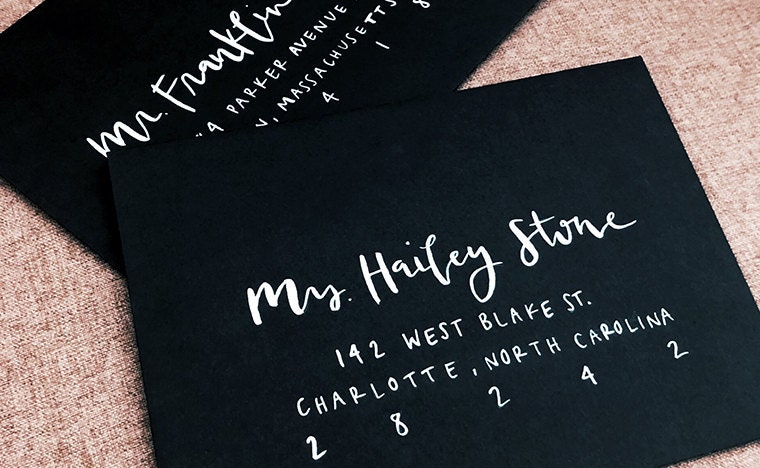 Mr. Franklin
PARKER AVENUE
MASSACHUSETTS
4 1 8
Ms. Hailey Stone
142 WEST BLAKE ST.
CHARLOTTE, NORTH CAROLINA
2 8 2 4 2